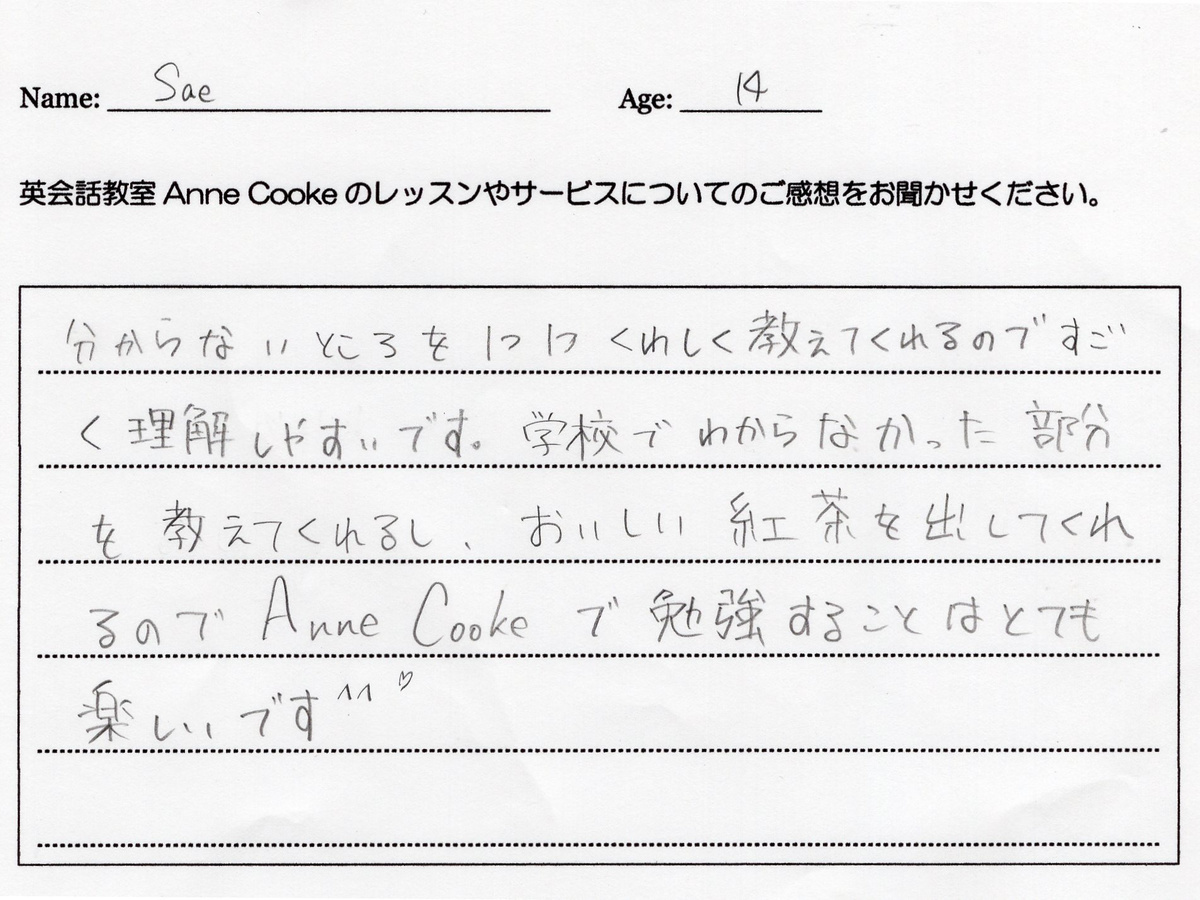 Name: Sae Age: 14
英会話教室 Anne Cooke のレッスンやサービスについてのご感想をお聞かせください。
分からないところを1つ1つくわしく教えてくれるのですご
く理解しやすいです。学校でわからなかった部分
を教えてくれるし、おいしい紅茶を出してくれ
るので Anne Cooke で勉強することはとても
楽しいです^^♡